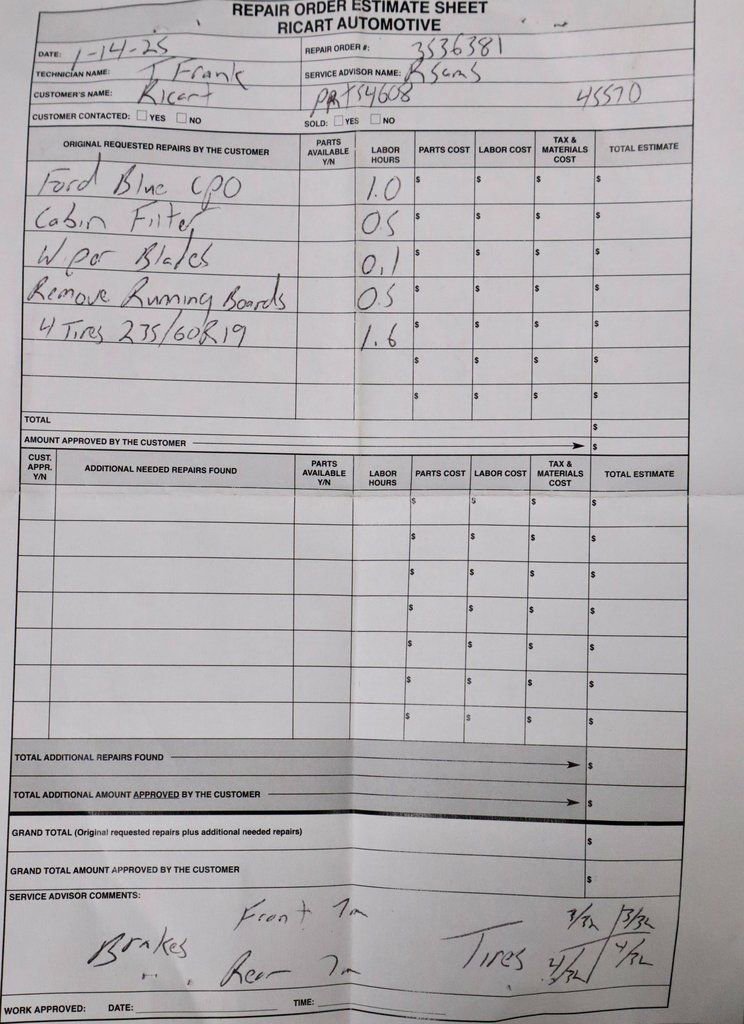 REPAIR ORDER ESTIMATE SHEET
RICART AUTOMOTIVE
DATE: 1-14-25 REPAIR ORDER #: 3536381
TECHNICIAN NAME: T Frank SERVICE ADVISOR NAME: R Sams
CUSTOMER'S NAME: Ricart PRT54608 45570
CUSTOMER CONTACTED: ☐ YES ☐ NO SOLD: ☐ YES ☐ NO
ORIGINAL REQUESTED REPAIRS BY THE CUSTOMER PARTS AVAILABLE Y/N LABOR HOURS PARTS COST LABOR COST TAX & MATERIALS COST TOTAL ESTIMATE
Ford Blue CPO 1.0 $ $ $ $
Cabin Filter 0.5 $ $ $ $
Wiper Blades 0.1 $ $ $ $
Remove Running Boards 0.5 $ $ $ $
4 Tires 235/60R19 1.6 $ $ $ $
$ $ $ $
$ $ $ $
TOTAL $
AMOUNT APPROVED BY THE CUSTOMER $
CUST. APPR. Y/N ADDITIONAL NEEDED REPAIRS FOUND PARTS AVAILABLE Y/N LABOR HOURS PARTS COST LABOR COST TAX & MATERIALS COST TOTAL ESTIMATE
$ $ $ $
$ $ $ $
$ $ $ $
$ $ $ $
$ $ $ $
$ $ $ $
$ $ $ $
TOTAL ADDITIONAL REPAIRS FOUND $
TOTAL ADDITIONAL AMOUNT APPROVED BY THE CUSTOMER $
GRAND TOTAL (Original requested repairs plus additional needed repairs) $
GRAND TOTAL AMOUNT APPROVED BY THE CUSTOMER $
SERVICE ADVISOR COMMENTS:
Front 7m 3/32 3/32
Brakes Tires
Rear 7m 4/32 4/32
WORK APPROVED: DATE: TIME: